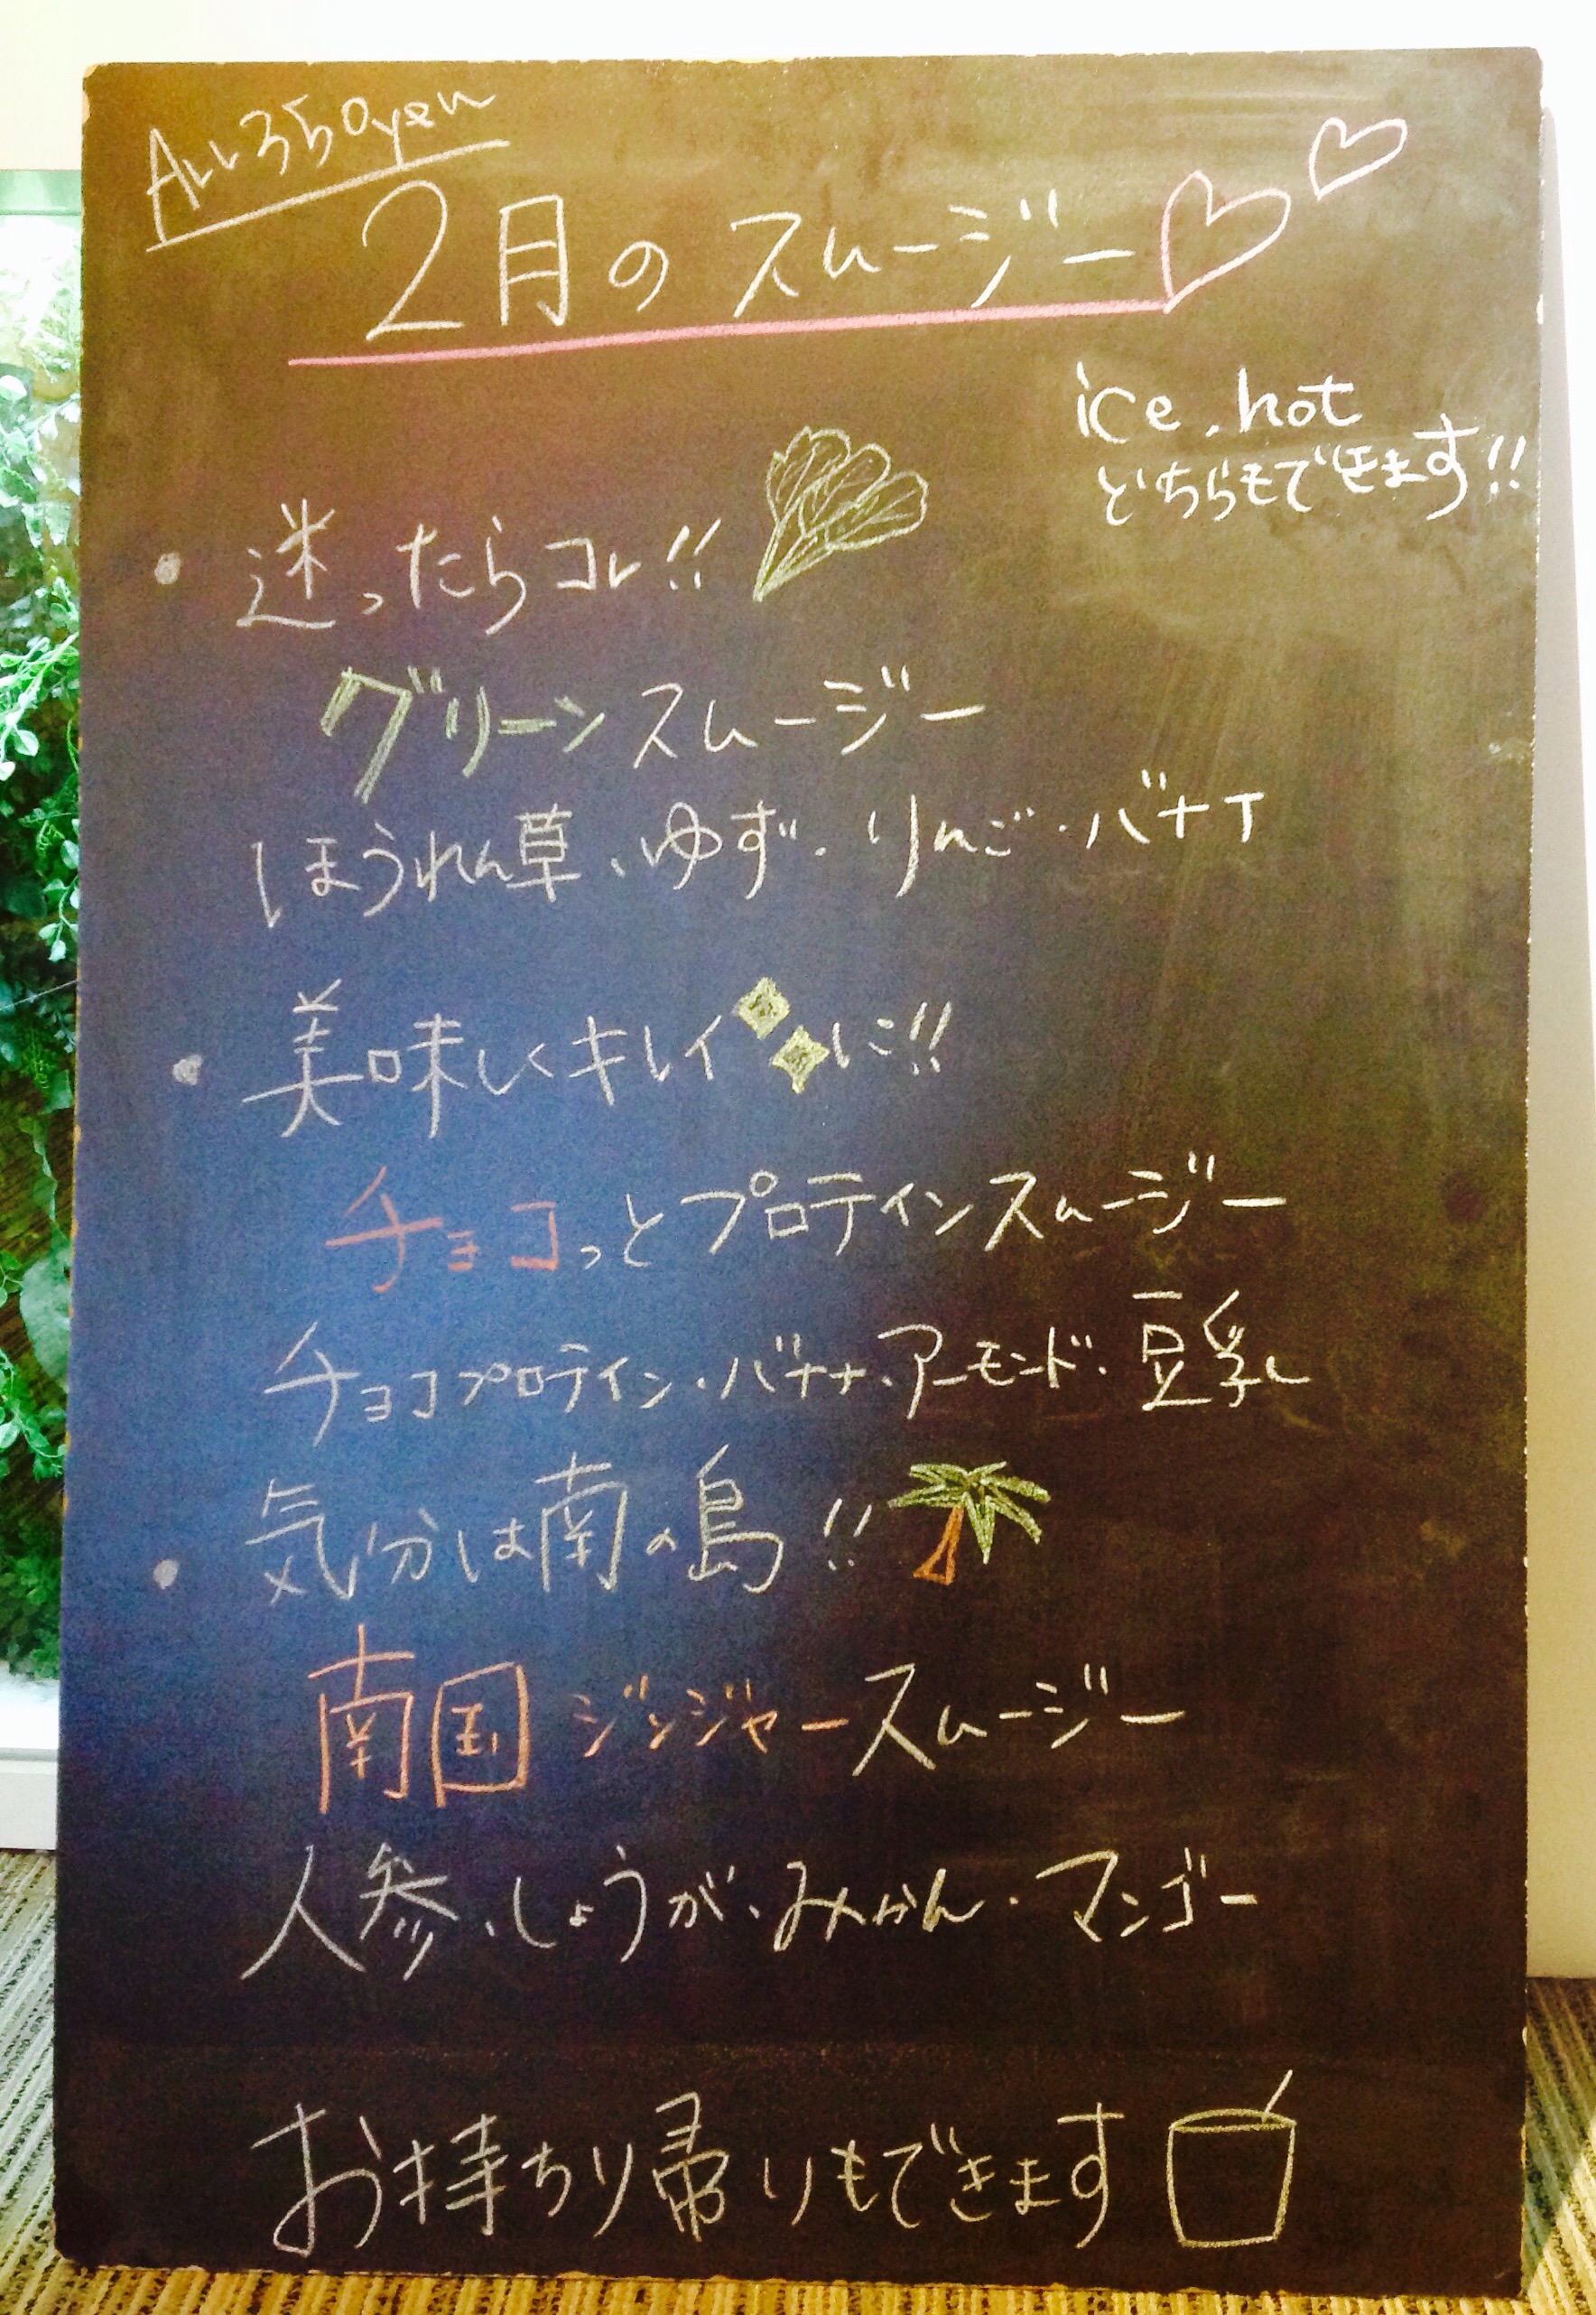 ALL 350yen
2月のスムージー
ice.hot
どちらもできます!!
・迷ったらコレ!!
グリーンスムージー
ほうれん草、ゆず・りんご・バナナ
・美味しくキレイに!!
チョコっとプロテインスムージー
チョコプロテイン・バナナ・アーモンド・豆乳
・気分は南の島!!
南国ジンジャースムージー
人参、しょうが、みかん・マンゴー
お持ち帰りもできます